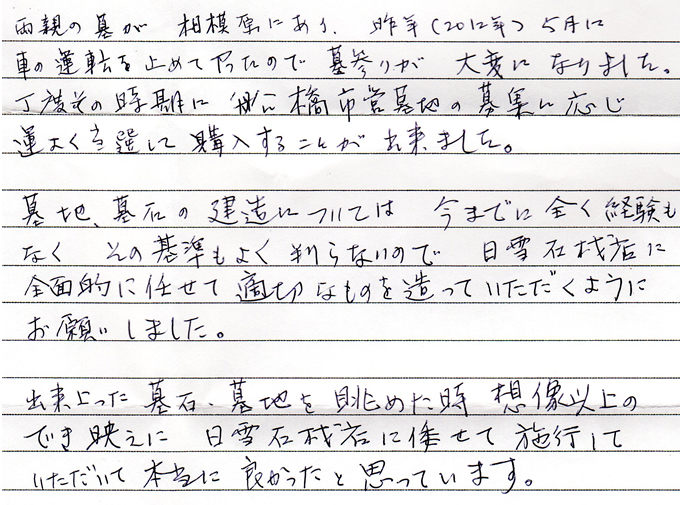 両親の墓が 相模原にあり、昨年(2012年)5月に
車の運転を止めて下ったので 墓参りが 大変になりました。
丁度その時期に 船橋市営墓地の募集に応じ
運よく当選して購入することが出来ました。
墓地、墓石の建造については 今までに全く経験も
なく その基準もよく判らないので 日雪石材店に
全面的に任せて適切なものを造っていただくように
お願いしました。
出来上った墓石、墓地を眺めた時 想像以上の
でき映えに 日雪石材店に任せて施行して
いただいて本当に良かったと思っています。